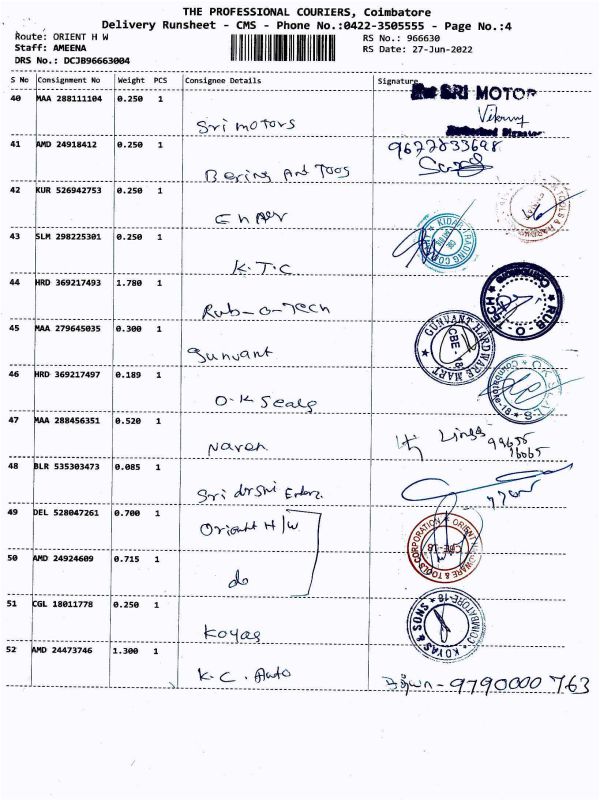 THE PROFESSIONAL COURIERS, Coimbatore
Delivery Runsheet - CMS - Phone No.:0422-3505555 - Page No.:4
Route: ORIENT H W RS No.: 966630
Staff: AMEENA RS Date: 27-Jun-2022
DRS No.: DCJB96663004
S No Consignment No Weight PCS Consignee Details Signature
40 MAA 288111104 0.250 1 SRI MOTOR
Sri motors
41 AMD 24918412 0.250 1
Bering And Toos
42 KUR 526942753 0.250 1
43 SLM 298225301 0.250 1 KIDAR TRADING CO
K.T.C
44 HRD 369217493 1.780 1 RUB-O-TECH
Rub-o-Tech
45 MAA 279645035 0.300 1 GUNVANT HARDWARE MART CBE-18
Gunvant
46 HRD 369217497 0.189 1 Coimbatore-18
O.K Seals
47 MAA 288456351 0.520 1
Naren
48 BLR 535303473 0.085 1
49 DEL 528047261 0.700 1 ORIENT HARDWARE & TOOLS CORPORATION CBE-18
Orient H/W
50 AMD 24924609 0.715 1
do
51 CGL 18011778 0.250 1 KOYAS & SONS COIMBATORE-18
Koyas
52 AMD 24473746 1.300 1
K.C. Auto 9790000 763